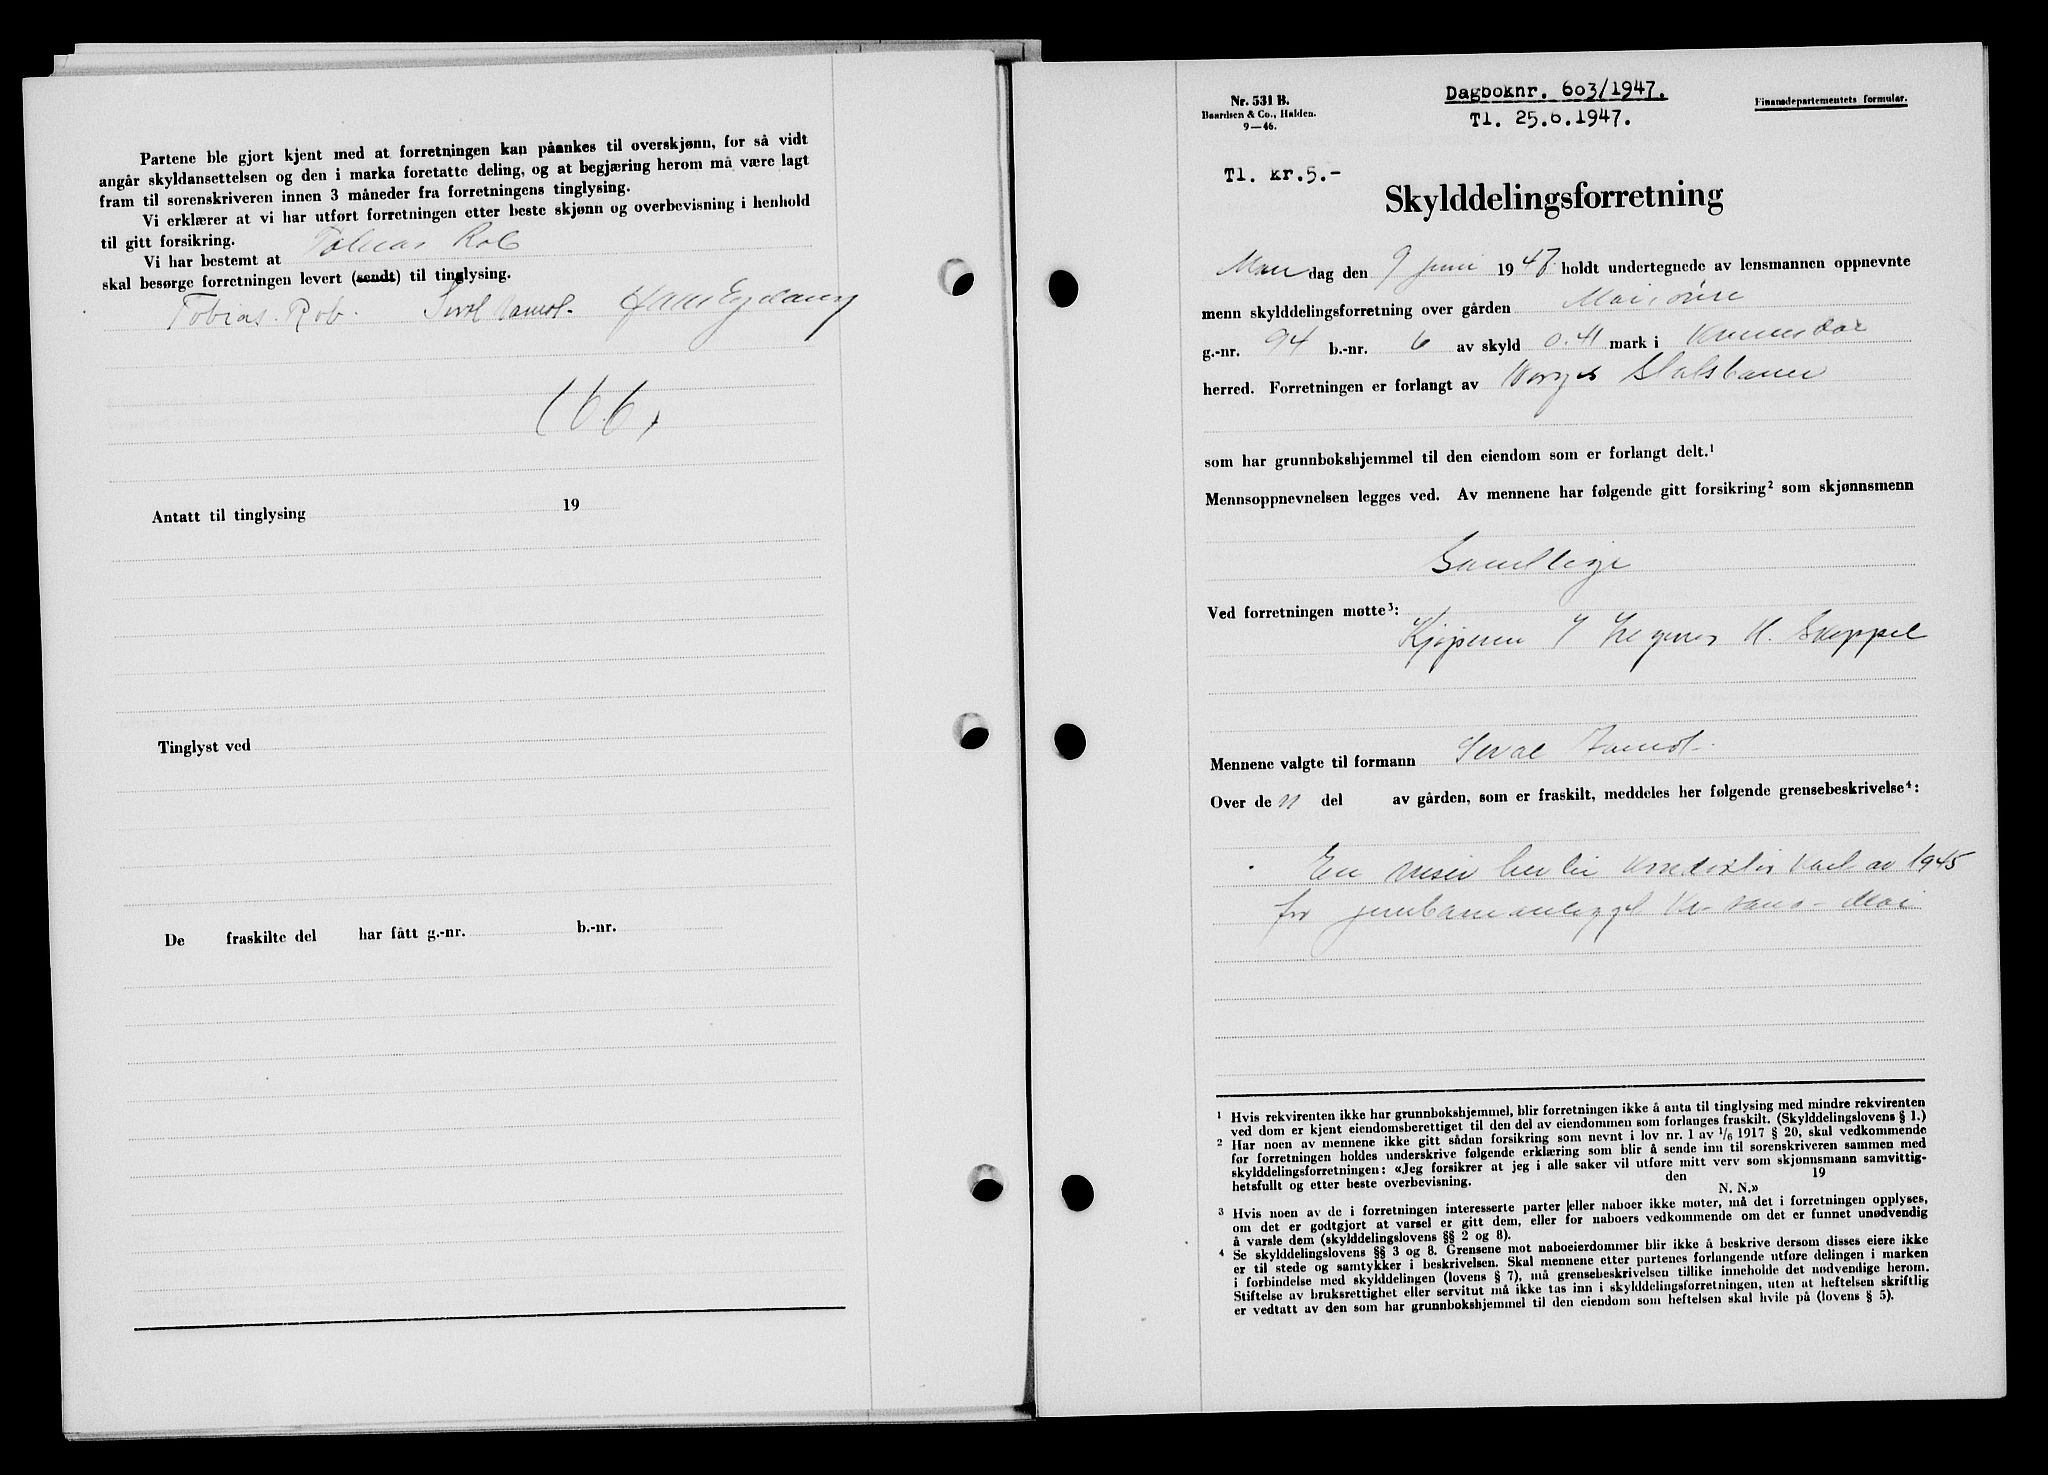 Partene ble gjort kjent med at forretningen kan påankes til overskjønn, for så vidt
angår skyldansettelsen og den i marka foretatte deling, og at begjæring herom må være lagt
fram til sorenskriveren innen 3 måneder fra forretningens tinglysing.
Vi erklærer at vi har utført forretningen etter beste skjønn og overbevisning i henhold
til gitt forsikring.
Vi har bestemt at Tobias Rob
skal besørge forretningen levert (sendt) til tinglysing.
Tobias Rob.
(66)
Antatt til tinglysing 19
Tinglyst ved
De fraskilte del har fått g.-nr. b.-nr.
Nr. 531 B.
Baardsen & Co., Halden.
9—46.
Dagboknr. 603/1947.
Tl. 25.6.1947.
Finansdepartementets formular.
Tl. kr.5.-
Skylddelingsforretning
Man dag den 9 juni 1947 holdt undertegnede av lensmannen oppnevnte
menn skylddelingsforretning over gården
g.-nr. 94 b.-nr. 6 av skyld 0.41 mark i
herred. Forretningen er forlangt av
som har grunnbokshjemmel til den eiendom som er forlangt delt.¹
Mennsoppnevnelsen legges ved. Av mennene har følgende gitt forsikring² som skjønnsmenn
Samtlige
Ved forretningen møtte³:
Kjøperen
Mennene valgte til formann
Over de n del av gården, som er fraskilt, meddeles her følgende grensebeskrivelse⁴:
En viser her til av 1945
for jernbaneanlegget
¹ Hvis rekvirenten ikke har grunnbokshjemmel, blir forretningen ikke å anta til tinglysing med mindre rekvirenten
ved dom er kjent eiendomsberettiget til den del av eiendommen som forlanges fraskilt. (Skylddelingslovens § 1.)
² Har noen av mennene ikke gitt sådan forsikring som nevnt i lov nr. 1 av 1/6 1917 § 20, skal vedkommende
før forretningen holdes underskrive følgende erklæring som blir å sende inn til sorenskriveren sammen med
skylddelingsforretningen: «Jeg forsikrer at jeg i alle saker vil utføre mitt verv som skjønnsmann samvittig-
hetsfullt og etter beste overbevisning. den 19
N. N.»
³ Hvis noen av de i forretningen interesserte parter eller naboer ikke møter, må det i forretningen opplyses,
om det er godtgjort at varsel er gitt dem, eller for naboers vedkommende om det er funnet unødvendig
å varsle dem (skylddelingslovens §§ 2 og 8).
⁴ Se skylddelingslovens §§ 3 og 8. Grensene mot naboeierdommer blir ikke å beskrive dersom disses eiere ikke
er til stede og samtykker i beskrivelsen. Skal mennene etter partenes forlangende utføre delingen i marken
i forbindelse med skylddelingen (lovens § 7), må grensebeskrivelsen tillike inneholde det nødvendige herom.
Stiftelse av bruksrettighet eller servitut må ikke tas inn i skylddelingsforretningen, uten at heftelsen skriftlig
er vedtatt av den som har grunnbokshjemmel til den eiendom som heftelsen skal hvile på (lovens § 5).